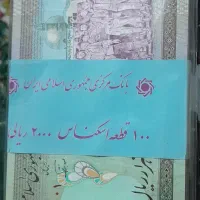 بانک مرکزی جمهوری اسلامی ایران
۱۰۰ قطعه اسکناس ۲۰۰۰ ریالی
جمهوری اسلامی